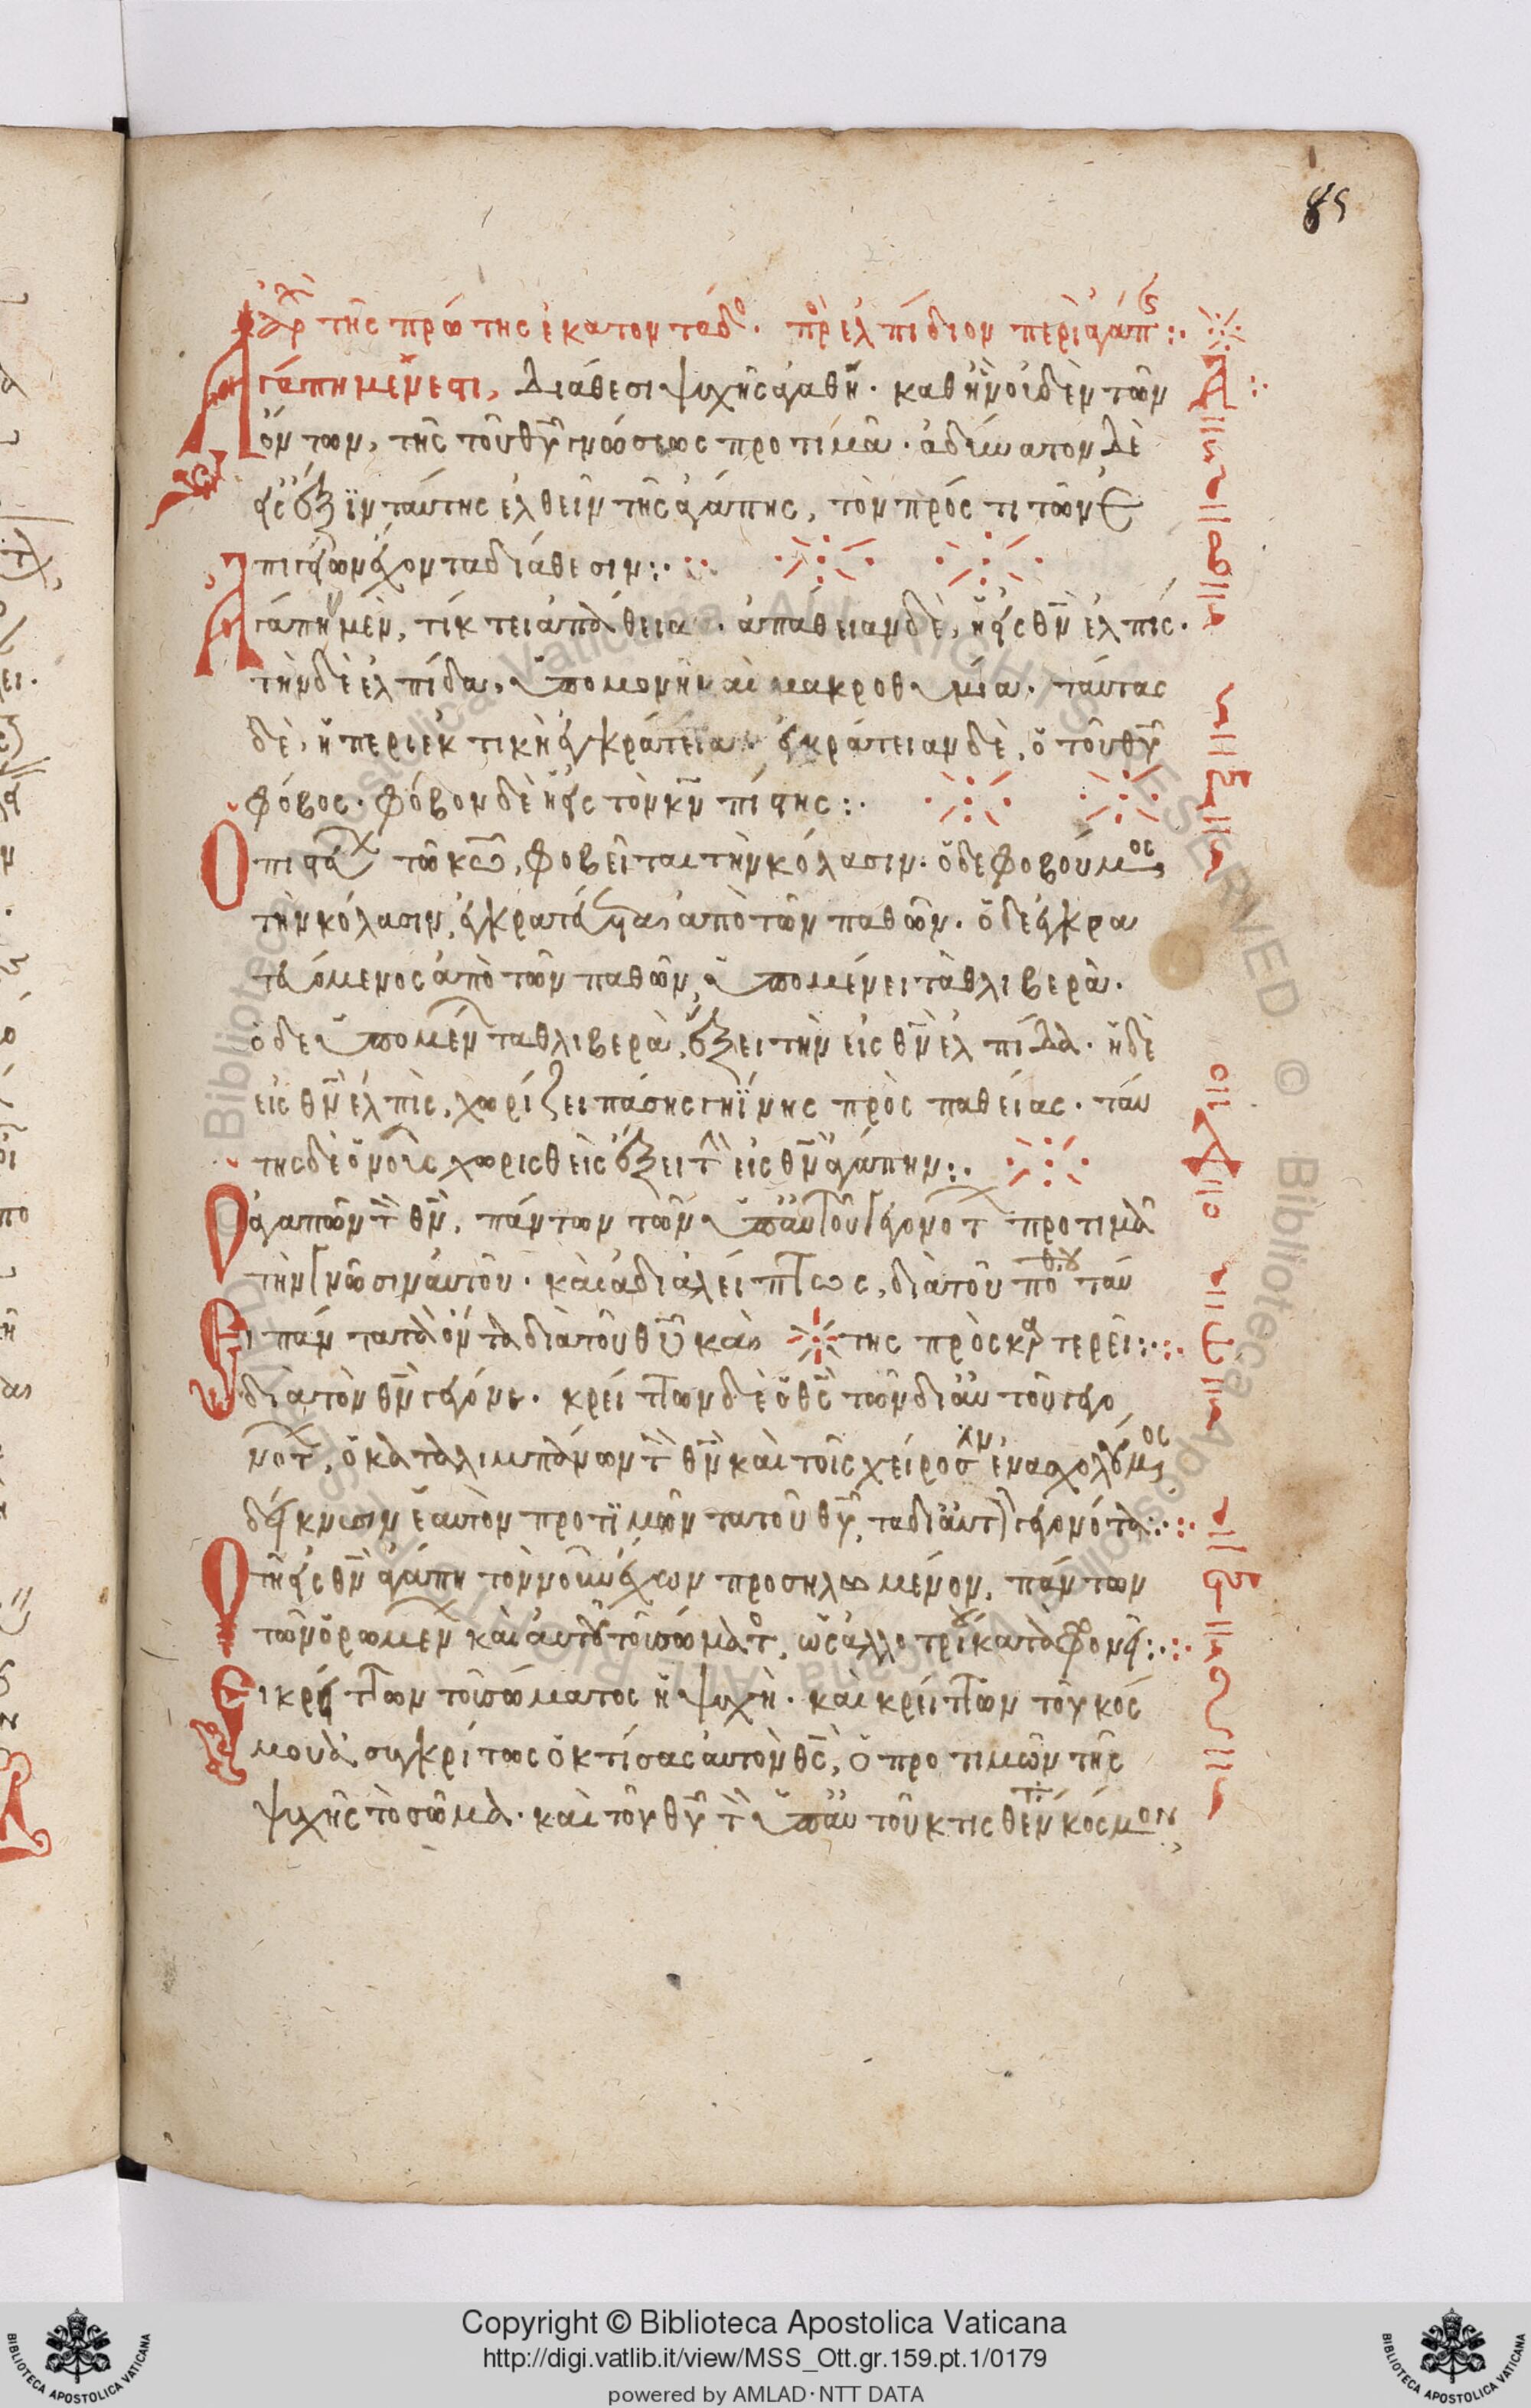 85
ἀρχ τῆς πρώτης ἑκατοντάδο. πρ ἐλπίδιον περὶ ἀγάπης :·
Ἀγάπη μέν ἐστι, διάθεσι ψυχῆς ἀγαθὴ. καθ ἣν οὐδὲν τῶν
ὄντων, τῆς τοῦ θυ γνώσεως προτιμᾶ. ἀδύνατον δὲ
εἰς ἕξιν ταύτης ἐλθεῖν τῆς ἀγάπης, τὸν πρός τι τῶν ἐ
πιγείων ἔχοντα διάθεσιν :·
Ἀγάπην μὲν, τίκτει ἀπάθεια. ἀπάθειαν δὲ, ἡ εἰς θν ἐλπίς.
τὴν δὲ ἐλπίδα, ὑπομονὴ καὶ μακροθυμία. ταύτας
δὲ, ἡ περιεκτικὴ ἐγκράτεια. ἐγκράτειαν δὲ, ὁ τοῦ θυ
φόβος. φόβον δὲ ἡ εἰς τὸν κν πίστις :·
Ὁ πιστεύων τῶ κω, φοβεῖται τὴν κόλασιν. ὁ δὲ φοβούμενος
τὴν κόλασιν, ἐγκρατεύεται ἀπὸ τῶν παθῶν. ὁ δὲ ἐγκρα
τευόμενος ἀπὸ τῶν παθῶν, ὑπομένει τὰ θλιβερὰ.
ὁ δὲ ὑπομένων τα θλιβερὰ, ἕξει τὴν εἰς θν ἐλπίδα. ἡ δὲ
εἰς θν ἐλπὶς, χωρίζει πάσης γηΐνης προσπαθείας. ταύ
της δὲ ὁ νοῦς χωρισθεὶς ἕξει τὴν εἰς θν ἀγάπην :·
Ὁ ἀγαπῶν τὸν θν, πάντων τῶν ὑπ αὐτοῦ γεγονότων προτιμᾶ
τὴν γνῶσιν αὐτοῦ. καὶ ἀδιαλείπτως, διὰ τοῦ πόθου ταύ
της προσκαρτερεῖ :·
Εἰ πάντα τὰ ὄντα διὰ τοῦ θυ καὶ
διὰ τὸν θν γέγονε. κρείττων δὲ ὁ θς τῶν δι αὐτοῦ γεγο
νότων, ὁ καταλιμπάνων τὸν θν καὶ τοῖς χείροσιν ἐνασχολούμενος
δείκνυσιν ἑαυτὸν προτιμῶν τα τοῦ θυ, τα δι αὐτοῦ γεγονότα :·
Ὁ τῆ εἰς θν ἀγάπη τὸν νοῦν ἔχων προσηλωμένον, πάντων
τῶν ὁρωμένων καὶ αὐτοῦ τοῦ σώματος, ὡς ἀλλοτρίου καταφρονεῖ :·
Εἰ κρείττων τοῦ σώματος ἡ ψυχὴ. καὶ κρείττων τοῦ κόσ
μου ἀσυγκρίτως ὁ κτίσας αὐτὸν θς, ὁ προτιμῶν τῆς
ψυχῆς τὸ σῶμα. καὶ τοῦ θυ τὸν ὑπ αὐτοῦ κτισθέντα κόσμον
Copyright © Biblioteca Apostolica Vaticana
http://digi.vatlib.it/view/MSS_Ott.gr.159.pt.1/0179
powered by AMLAD·NTT DATA